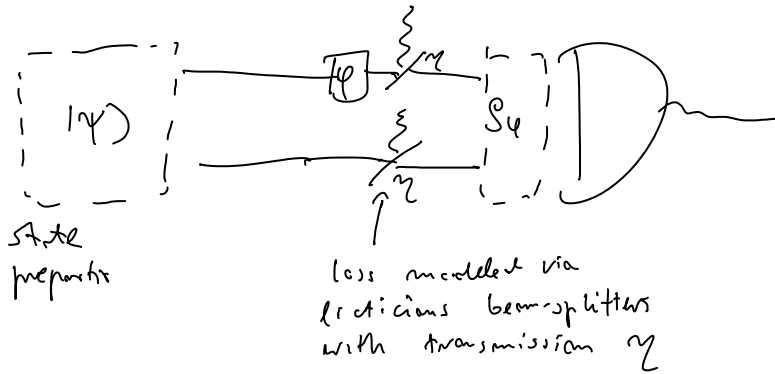 |ψ⟩
φ
η
η
ρφ
state
loss modeled via
ficticious beam-splitters
with transmission η